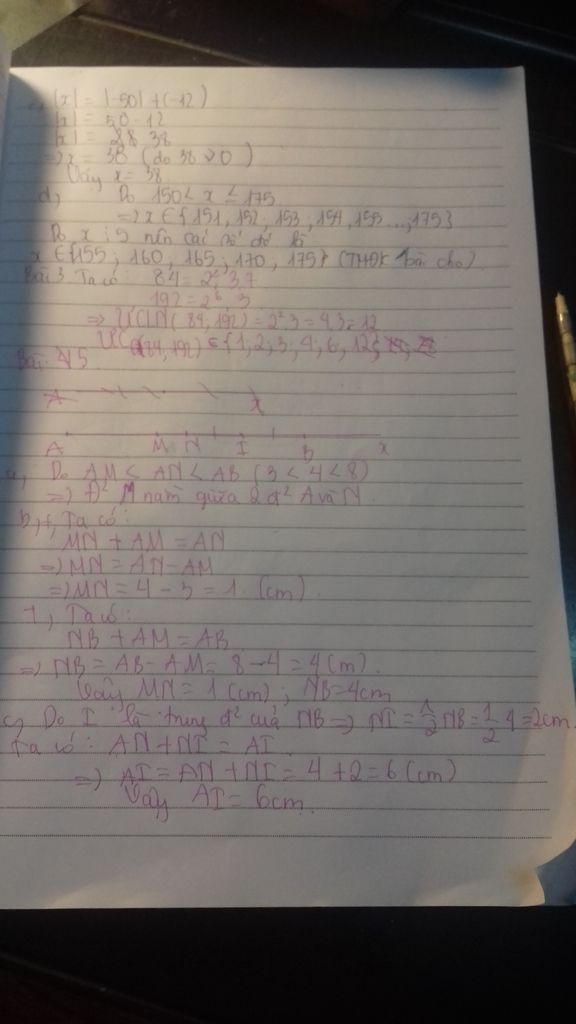 c, |x| = |-50| + (-12)
|x| = 50 - 12
|x| = 38
=> x = 38 (do 38 > 0)
Vậy x = 38
d, Do 150 < x ≤ 175
=> x ∈ {151, 152; 153; 154, 155...; 175}
Do x ⋮ 5 nên các số đó là
x ∈ {155; 160, 165; 170, 175} (TMĐK bài cho).
Bài 3 Ta có: 84 = 2². 3.7
192 = 2⁶. 3
=> ƯCLN(84, 192) = 2².3 = 4.3 = 12
ƯC(84, 192) ∈ {1; 2; 3; 4; 6, 12}
Bài 5
A x
A M N I B x
a, Do AM < AN < AB (3 < 4 < 8)
=> Đ² M nằm giữa 2 đ² A và N
b, +, Ta có:
MN + AM = AN
=> MN = AN - AM
=> MN = 4 - 3 = 1 (cm)
+, Ta có:
NB + AM = AB
=> NB = AB - AM = 8 - 4 = 4 (m).
Vậy MN = 1 (cm); NB = 4cm
c, Do I là trung đ² của NB => NI = 1/2 NB = 1/2 4 = 2cm
Ta có: AN + NI = AI
=> AI = AN + NI = 4 + 2 = 6 (cm)
Vậy AI = 6cm.